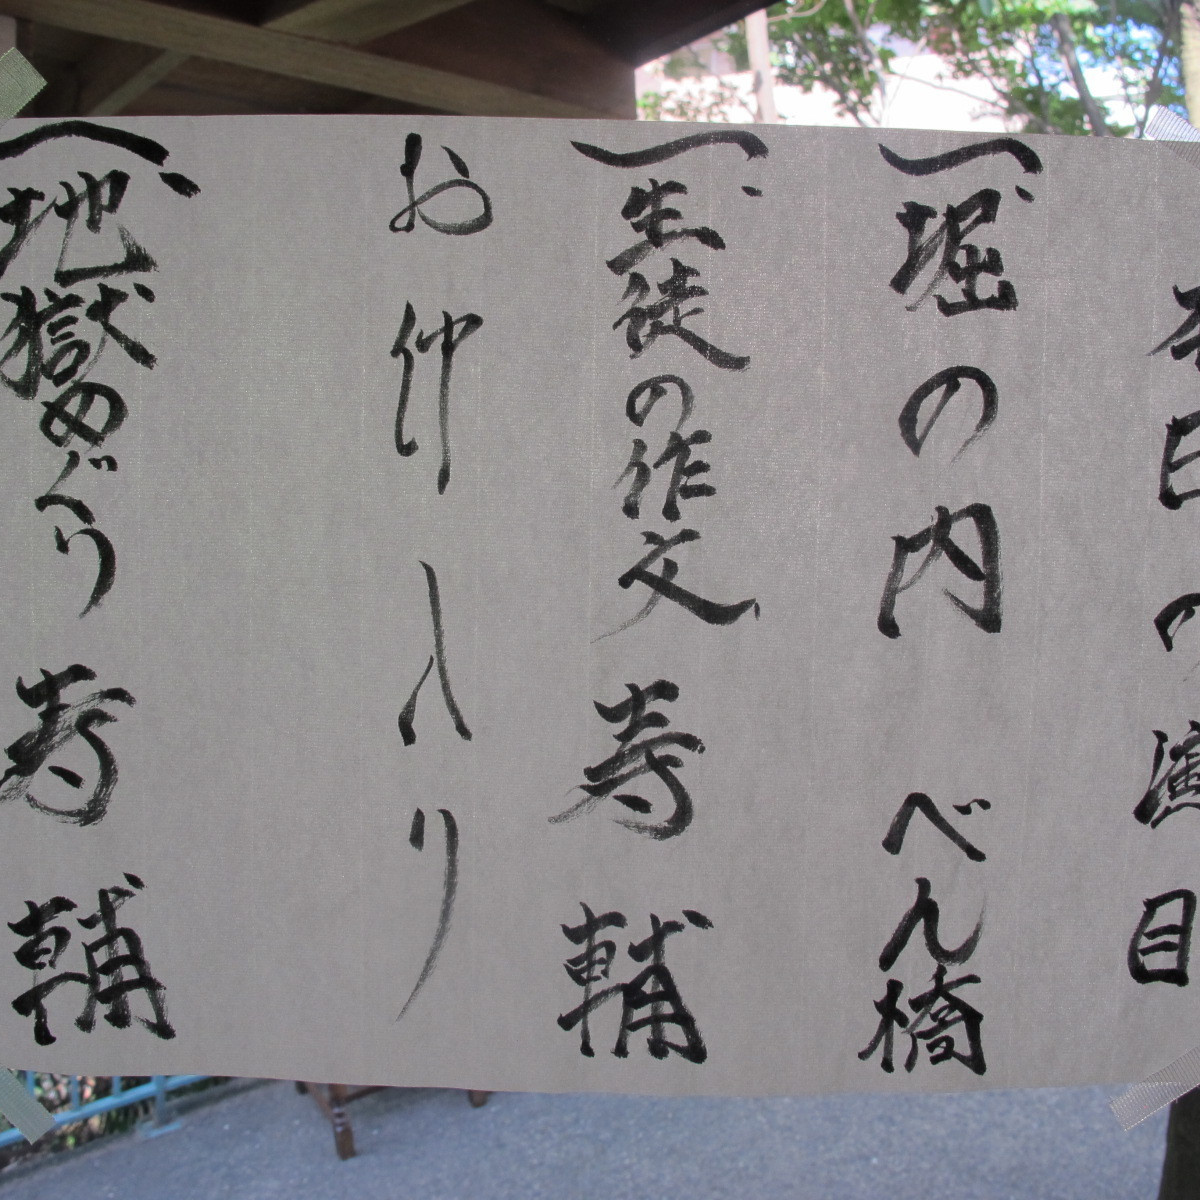 本日の演目
一、堀の内 べん橋
一、生徒の作文 寿輔
お仲入り
一、地獄めぐり 寿輔